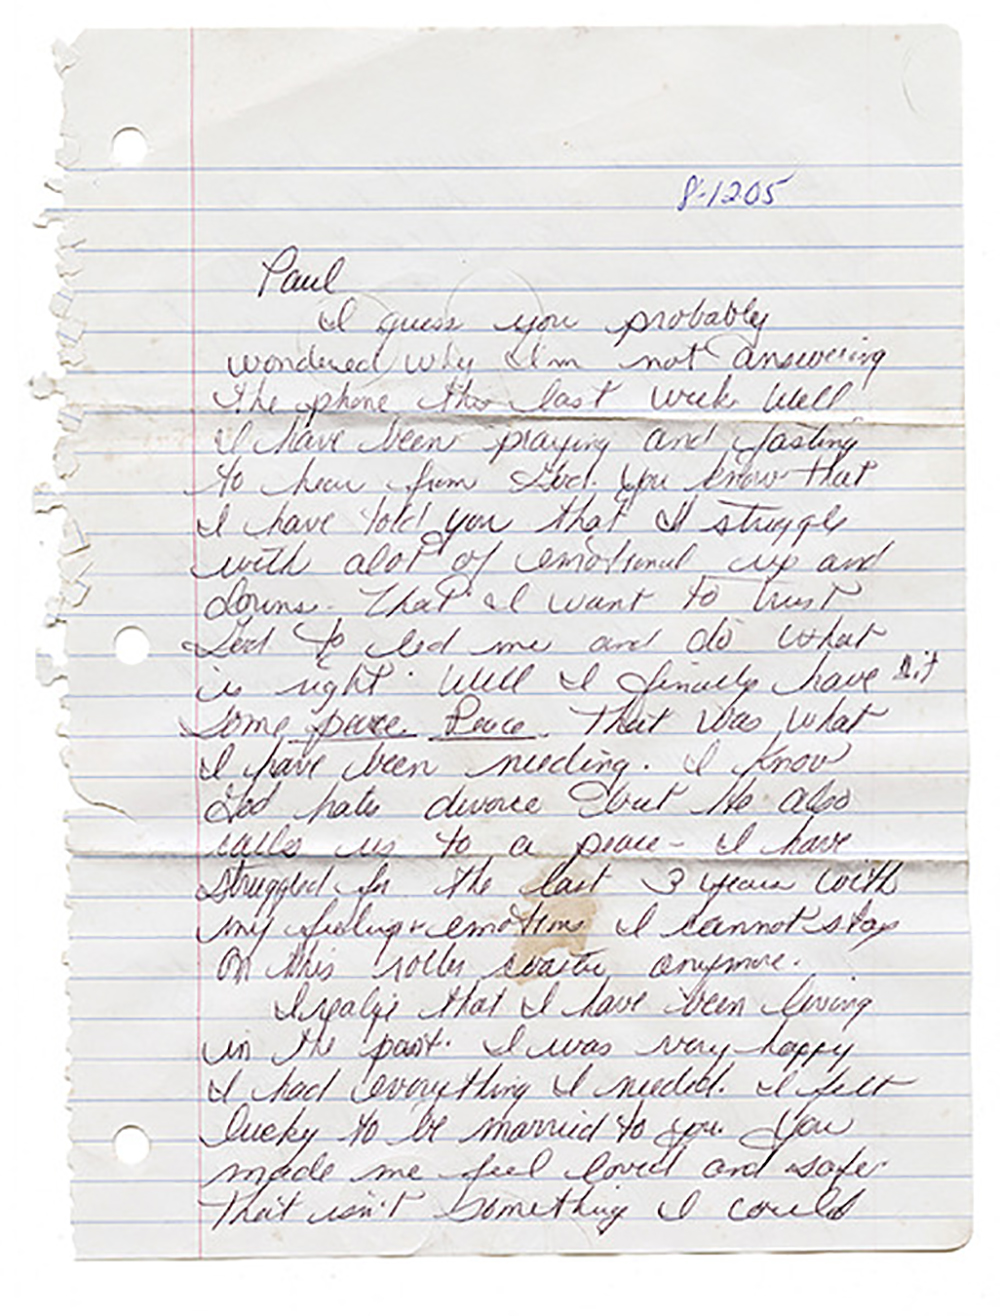 8-1205
Paul
I guess you probably
wondered why I'm not answering
the phone this last week. Well
I have been praying and fasting
to hear from God. You know that
I have told you that I struggle
with alot of emotional up and
Downs. That I want to trust
God to led me and do what
is right. Well I finally have it
some peace. Peace. That was what
I have been needing. I know
God hates divorce but He also
calls us to a peace - I have
struggled for the last 3 years with
my feeling & emotions I cannot stay
on this roller coaster anymore.
I realize that I have been living
in the past. I was very happy
I had everything I needed. I felt
lucky to be married to you. You
made me feel loved and safe.
That isn't something I could